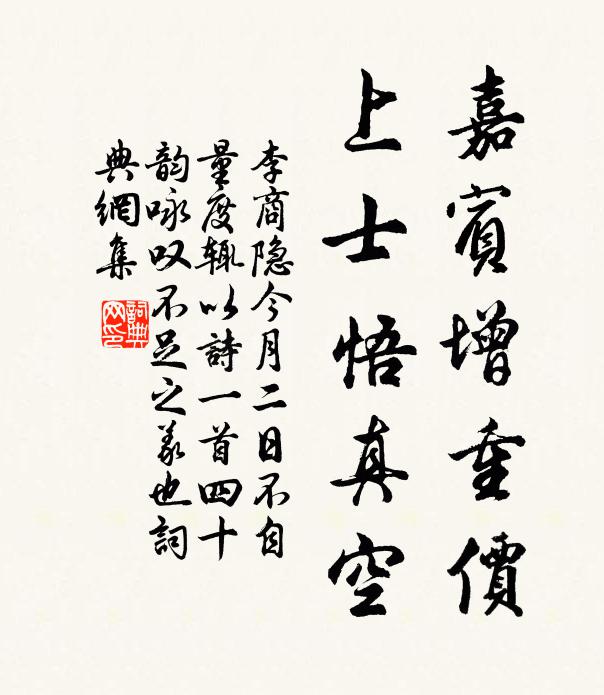 嘉賓增重價
上士悟真空
李商隐今月二日不自
量度辄以詩一首四十
韵咏叹不足之义也詞
典網集
詞典
网印